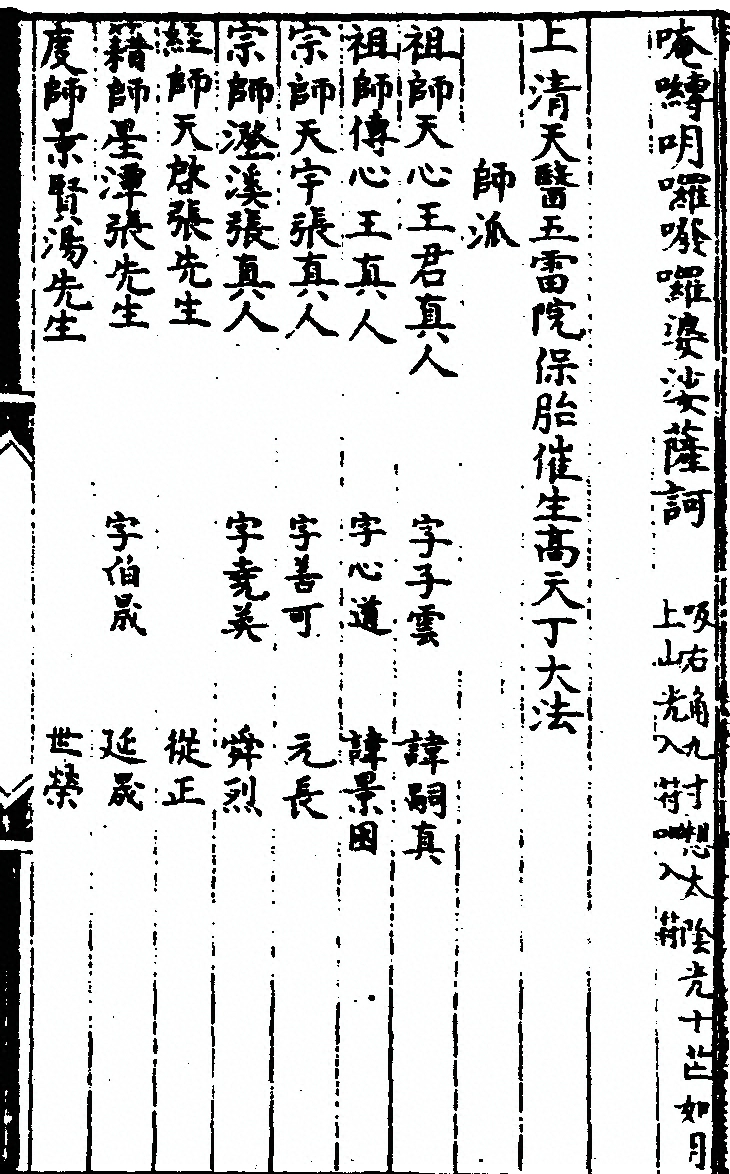 唵嚩明囉嘙囉婆娑薩訶 吸右角九寸想太陰光十芒如月
上山光入符 入符
上清天醫五雷院保胎催生高天丁大法
師派
祖師天心王君真人 字子雲 諱嗣真
祖師傳心王真人 字心道 諱景困
宗師天宇張真人 字善可 元長
宗師澄溪張真人 字堯英 舜烈
經師天啓張先生 從正
籍師星潭張先生 字伯晟 延晟
度師景賢湯先生 世榮